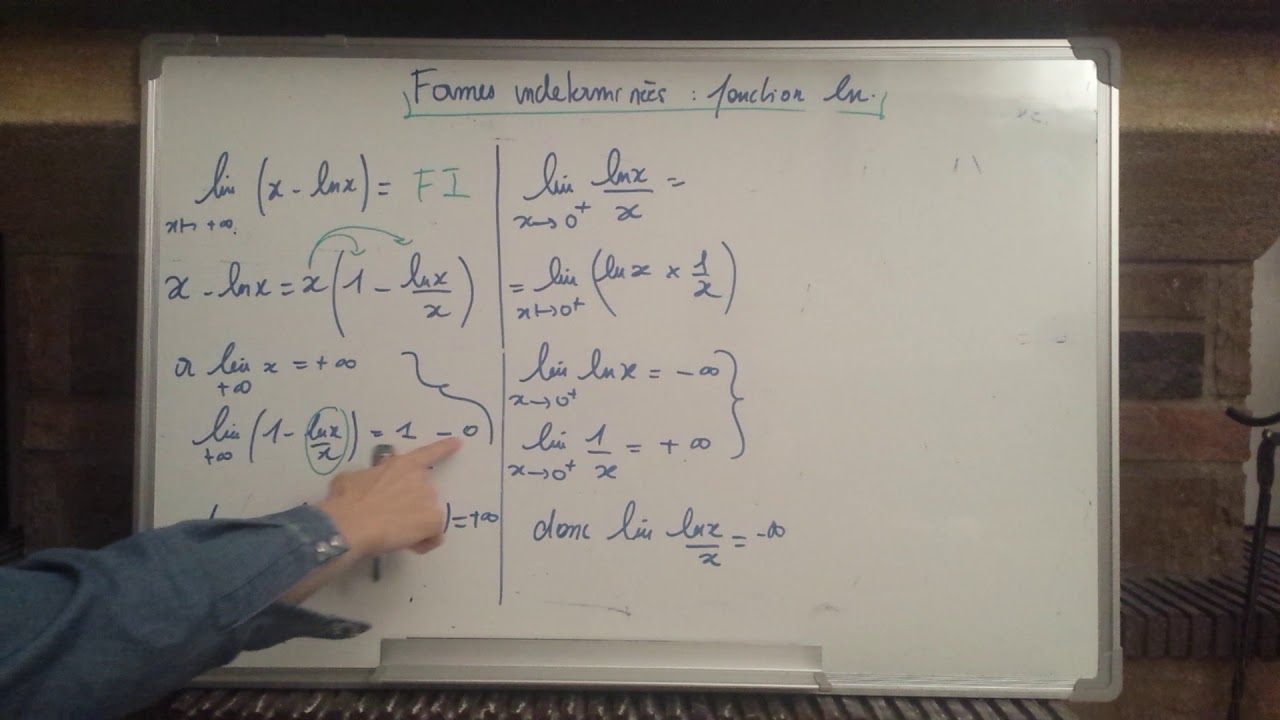 Formes indeterminées : fonction ln.
lim (x - lnx) = FI
x↦ +∞.
x - lnx = x(1 - lnx/x)
or lim x = +∞
+∞
lim (1 - lnx/x) = 1 - 0
+∞
) = +∞
lim lnx/x =
x→0⁺
= lim (lnx × 1/x)
x↦0⁺
lim lnx = -∞
x→0⁺
lim 1/x = +∞
x→0⁺
donc lim lnx/x = -∞